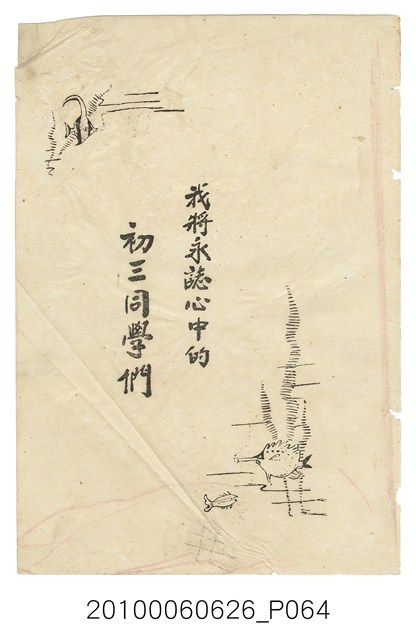 我將永誌心中的
初三同學們
20100060626_P064